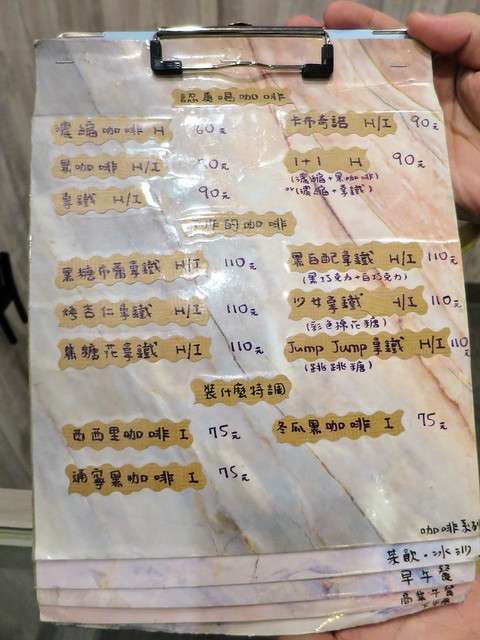 認真喝咖啡
濃縮咖啡 H 60元
卡布奇諾 H/I 90元
黑咖啡 H/I 50元
1+1 H 90元
(濃縮+黑咖啡)
or(濃縮+拿鐵)
拿鐵 H/I 90元
作的咖啡
黑糖布蕾拿鐵 H/I 110元
黑白配拿鐵 H/I 110元
(黑巧克力+白巧克力)
烤杏仁拿鐵 H/I 110元
少女拿鐵 H/I 110元
(彩色棉花糖)
焦糖花拿鐵 H/I 110元
Jump Jump拿鐵 H/I 110元
(跳跳糖)
裝什麼特調
西西里咖啡 I 75元
冬瓜黑咖啡 I 75元
通寧黑咖啡 I 75元
咖啡系列
茶飲.冰沙
早午餐